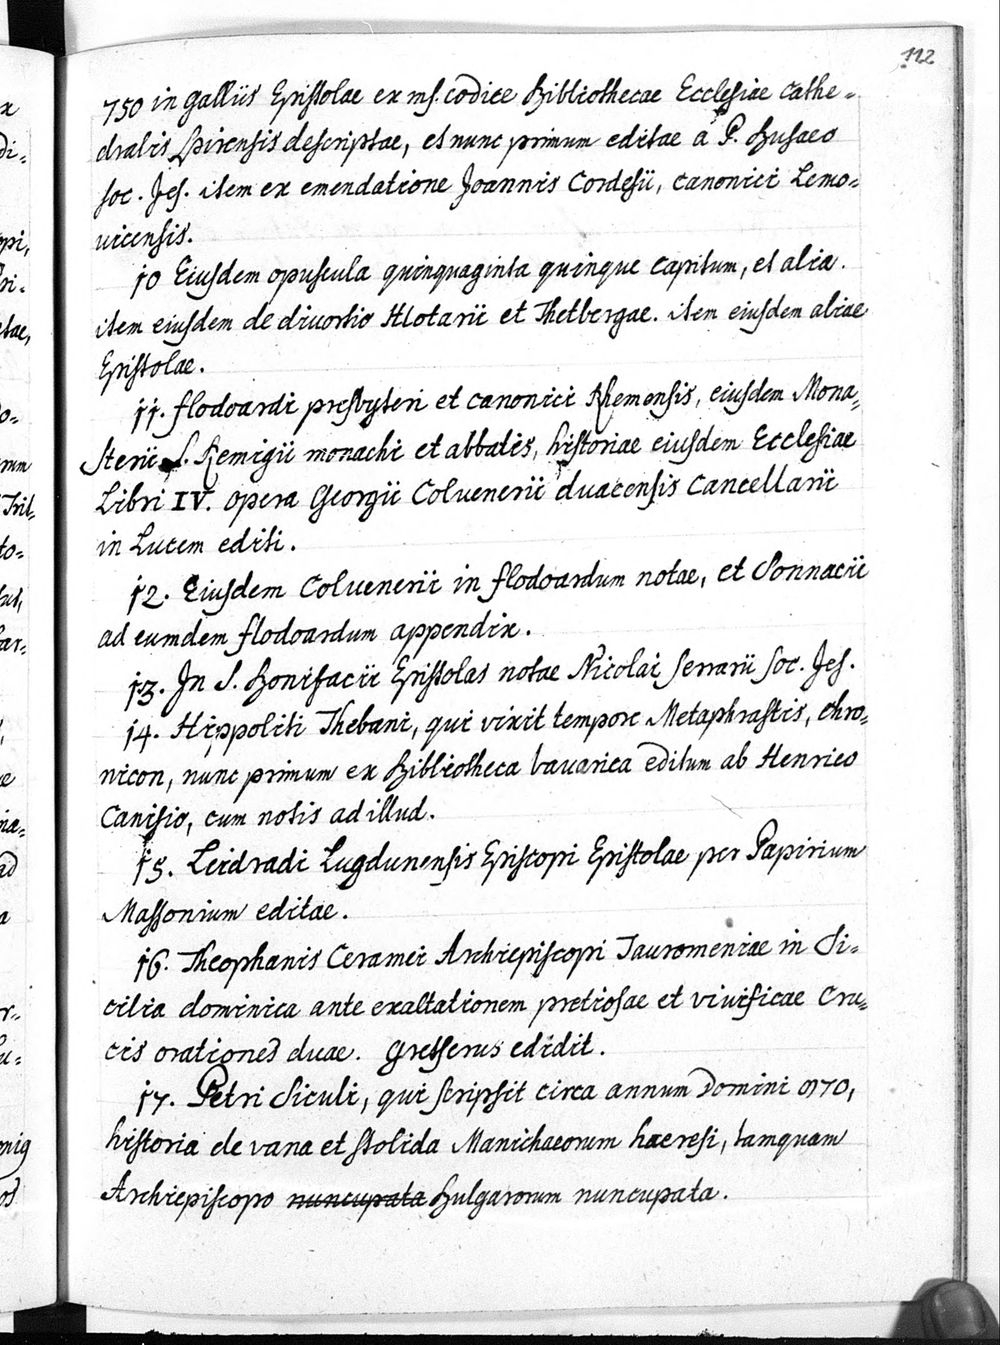 112
750 in Galliis Epistolae ex ms. codice Bibliothecae Ecclesiae Cathe=
dralis Spirensis descriptae, et nunc primum editae à P. Busaeo
soc. Jes. item ex emendatione Joannis Cordesii, canonici Lemo=
vicensis.
10 Eiusdem opuscula quinquaginta quinque capitum, et alia.
item eiusdem de divortio Hlotarii et Thetbergae. item eiusdem aliae
Epistolae.
11. flodoardi presbyteri et canonici Rhemensis, eiusdem Mona=
sterii S. Remigii monachi et abbatis, historiae eiusdem Ecclesiae
Libri IV. opera Georgii Colvenerii duacensis Cancellarii
in Lucem editi.
12. Eiusdem Colvenerii in flodoardum notae, et Sonnacii
ad eumdem flodoardum appendix.
13. In S. Bonifacii Epistolas notae Nicolai Serrarii Soc. Jes.
14. Hippoliti Thebani, qui vixit tempore Metaphrastis, chro=
nicon, nunc primum ex Bibliotheca bavarica editum ab Henrico
Canisio, cum notis ad illud.
15. Leidradi Lugdunensis Episcopi Epistolae per Papirium
Massonium editae.
16. Theophanis Ceramei Archiepiscopi Tauromeniae in Si=
cilia dominica ante exaltationem pretiosae et vivificae Cru=
cis orationes duae. Gretserus edidit.
17. Petri Siculi, qui scripsit circa annum Domini 870,
historia de vana et stolida Manichaeorum haeresi, tamquam
Archiepiscopo nuncupata Bulgarorum nuncupata.